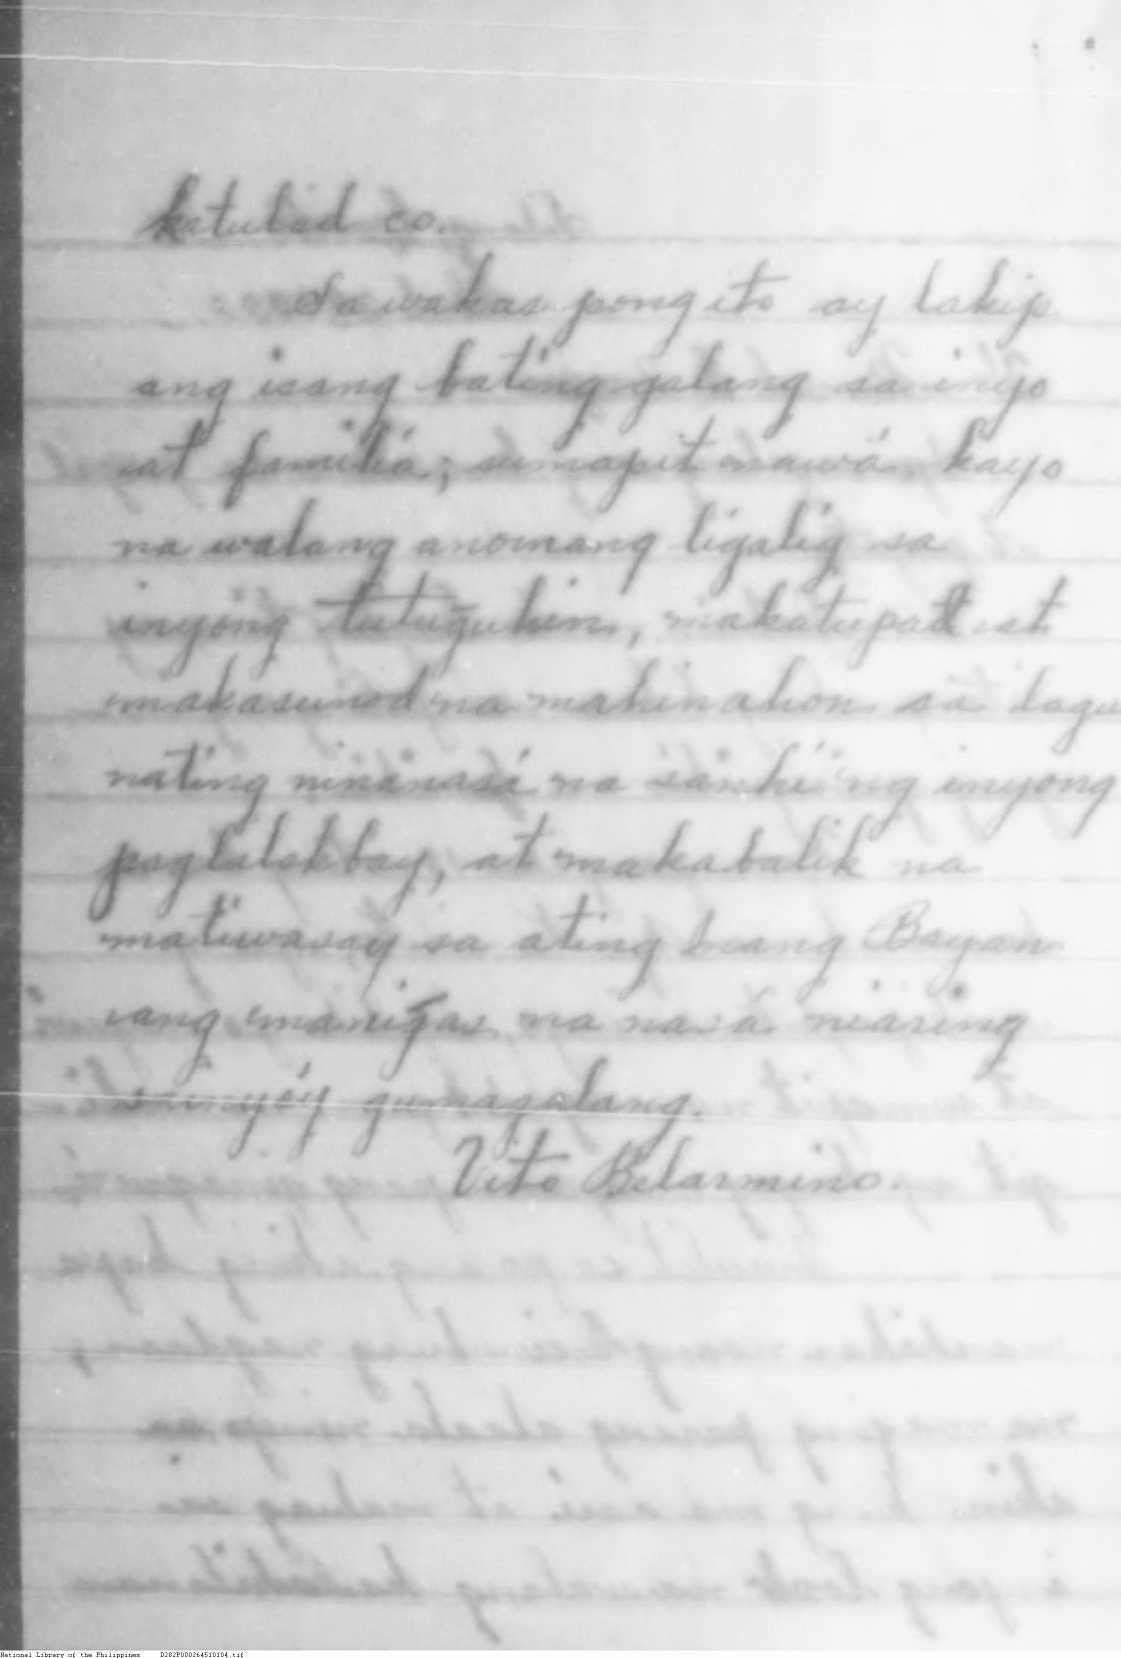 katulad co.
Sa wakas pong ito ay lakip
ang isang bating galang sa inyo
at familia; sumapit nawá kayo
na walang anomang ligalig sa
inyong tutuguhin, makatupad at
makasunod na mahinahon sa
nating ninanasá na sanhi ng inyong
paglalakbay, at makabalik na
matiwasay sa ating Inang Bayan
ang maningas na nasá niaring
sainyo'y gumagalang.
Vito Belarmino.
National Library of the Philippines D282P000264510104.tif